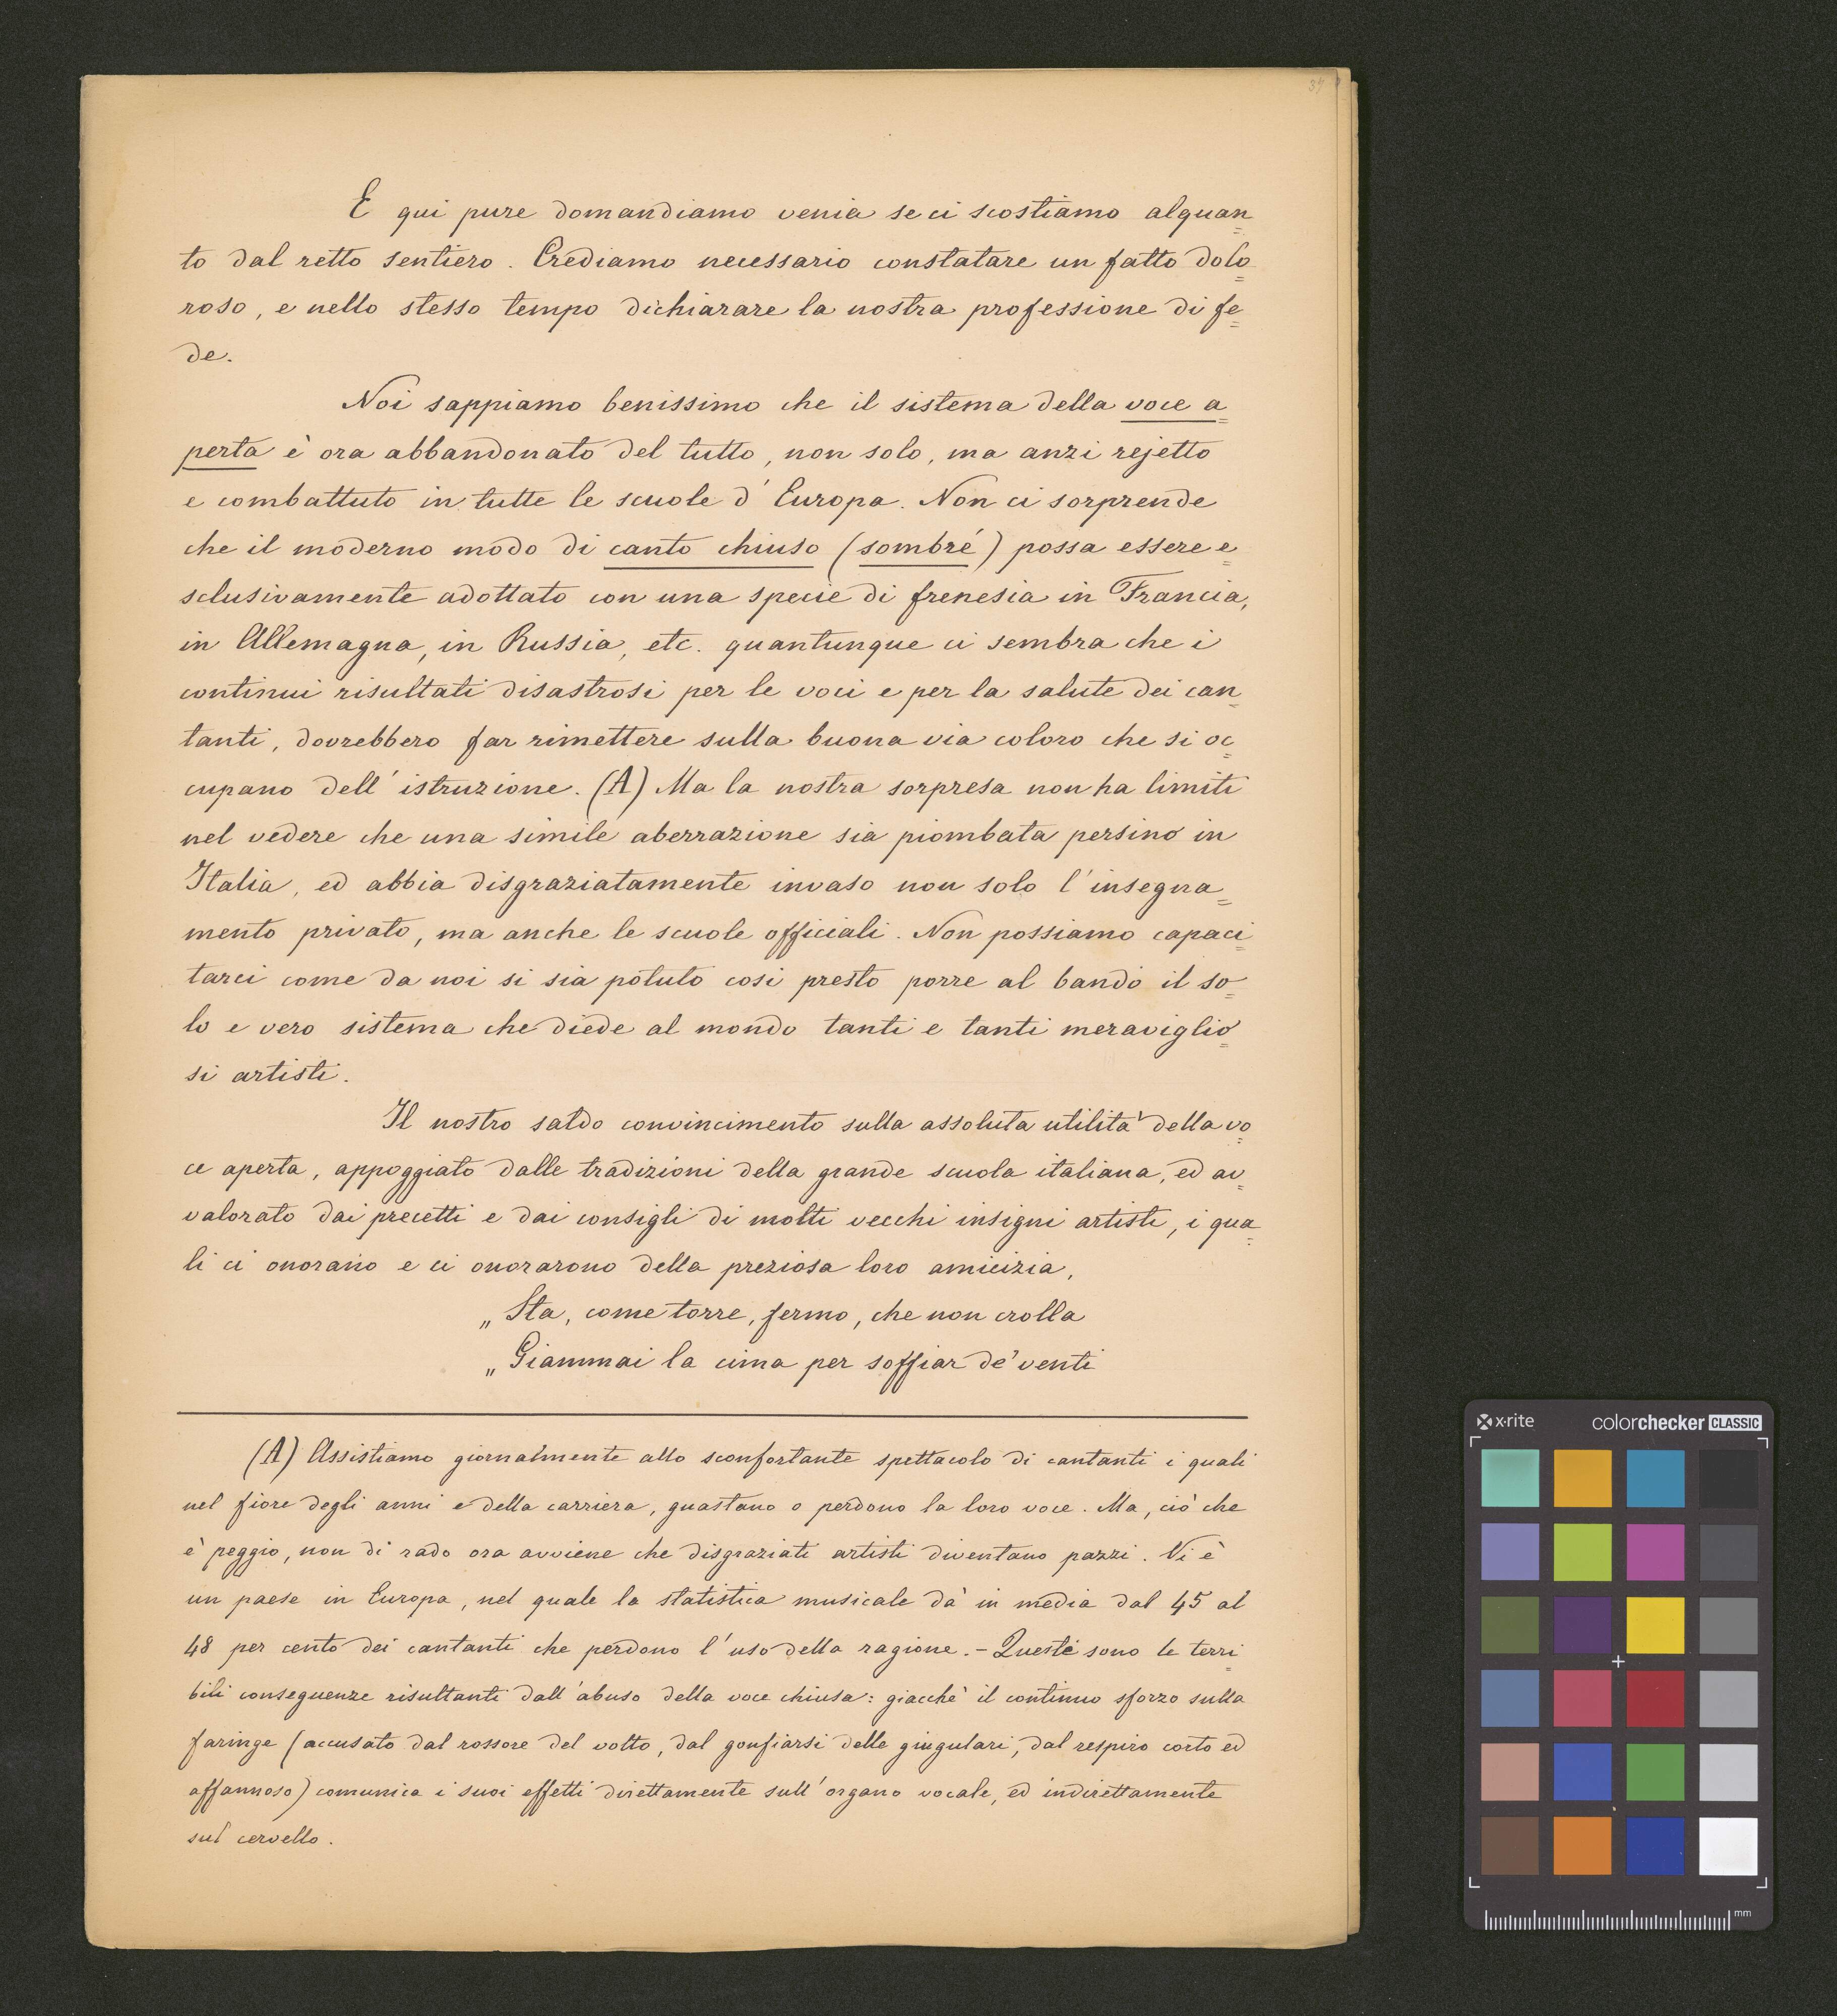 E qui pure domandiamo venia se ci scostiamo alquan=
to dal retto sentiero. Crediamo necessario constatare un fatto dolo=
roso, e nello stesso tempo dichiarare la nostra professione di fe=
de.
Noi sappiamo benissimo che il sistema della voce a=
perta è ora abbandonato del tutto, non solo, ma anzi rejetto
e combattuto in tutte le scuole d'Europa. Non ci sorprende
che il moderno modo di canto chiuso (sombré) possa essere e=
sclusivamente adottato con una specie di frenesia in Francia,
in Allemagna, in Russia, etc. quantunque ci sembra che i
continui risultati disastrosi per le voci e per la salute dei can=
tanti, dovrebbero far rimettere sulla buona via coloro che si oc=
cupano dell'istruzione. (A) Ma la nostra sorpresa non ha limiti
nel vedere che una simile aberrazione sia piombata persino in
Italia, ed abbia disgraziatamente invaso non solo l'insegna=
mento privato, ma anche le scuole officiali. Non possiamo capaci=
tarci come da noi si sia potuto così presto porre al bando il so=
lo e vero sistema che diede al mondo tanti e tanti meraviglio=
si artisti.
Il nostro saldo convincimento sulla assoluta utilità della vo=
ce aperta, appoggiato dalle tradizioni della grande scuola italiana, ed av=
valorato dai precetti e dai consigli di molti vecchi insigni artisti, i qua=
li ci onorano e ci onorarono della preziosa loro amicizia,
„ Sta, come torre, fermo, che non crolla
„ Giammai la cima per soffiar de' venti
(A) Assistiamo giornalmente allo sconfortante spettacolo di cantanti i quali
nel fiore degli anni e della carriera, guastano o perdono la loro voce. Ma, ciò che
è peggio, non di rado ora avviene che disgraziati artisti diventano pazzi. Vi è
un paese in Europa, nel quale la statistica musicale dà in media dal 45 al
48 per cento dei cantanti che perdono l'uso della ragione. – Queste sono le terri=
bili conseguenze risultanti dall'abuso della voce chiusa: giacchè il continuo sforzo sulla
faringe (accusato dal rossore del volto, dal gonfiarsi delle giugulari, dal respiro corto ed
affannoso) comunica i suoi effetti direttamente sull'organo vocale, ed indirettamente
sul cervello.
x·rite colorchecker CLASSIC
mm